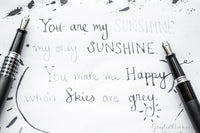 You are my SUNSHINE
my only SUNSHINE.
You make me Happy
when Skies are grey.